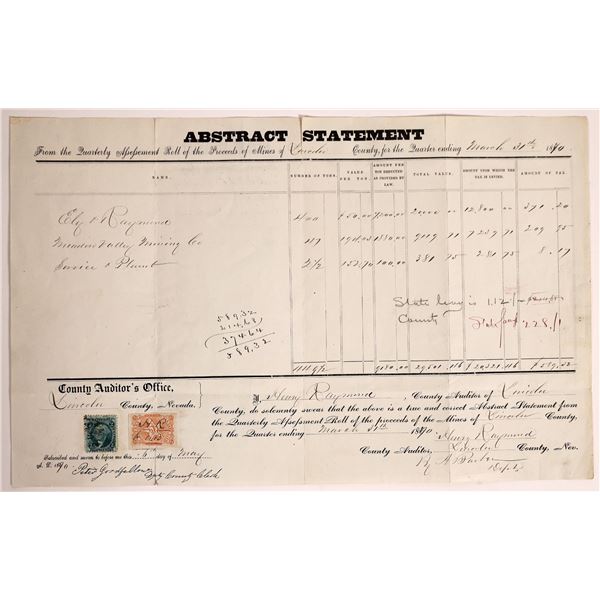 ABSTRACT STATEMENT
From the Quarterly Assessment Roll of the Proceeds of Mines of Lincoln County, for the Quarter ending March 31st 1870.
NAME. NUMBER OF TONS. VALUE PER TON. AMOUNT PER TON DEDUCTED AS PROVIDED BY LAW. TOTAL VALUE. AMOUNT UPON WHICH THE TAX IS LEVIED. AMOUNT OF TAX.
Ely & Raymond 400 50.00 7200.00 20,000 00 12,800 00 371 20
Meadow Valley Mining Co 117 1880.00 9119 71 7239 71 209 95
& 2½ 152.70 100.00 381 75 281 75 8 17
State levy is 1.12
County
228.
589.32
214.68
374.64
589.32
9180.00 20,321.46 589.32
County Auditor's Office,
Lincoln County, Nevada.
I, Henry Raymond, County Auditor of Lincoln
County, do solemnly swear that the above is a true and correct Abstract Statement from
the Quarterly Assessment Roll of the proceeds of the Mines of Lincoln County,
for the Quarter ending March 31st 1870
Henry Raymond
County Auditor, Lincoln County, Nev.
By
Depty
Subscribed and sworn to before me this day of May
A. D. 1870
Peter Goodfellow
Depty County Clerk